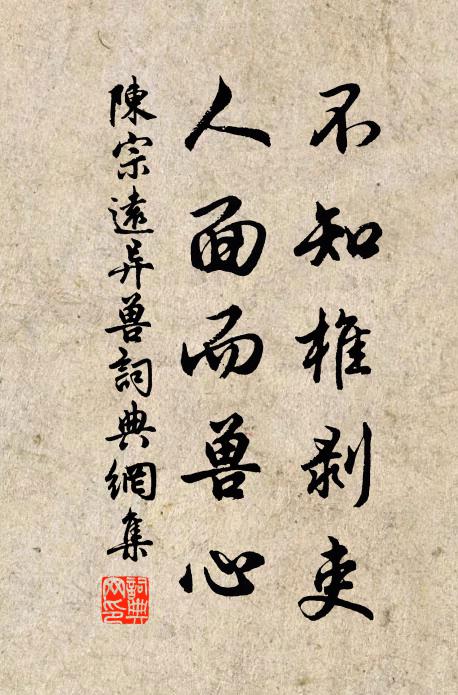 不知椎剥吏
人面而兽心
陳宗遠异兽詞典網集
詞典网印